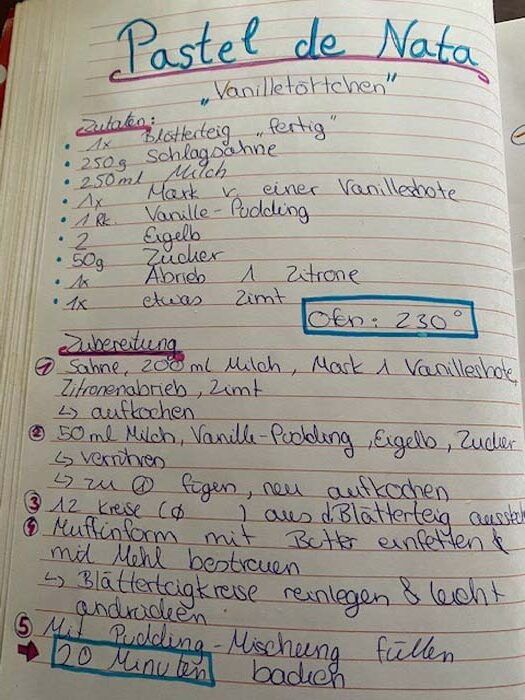 Pastel de Nata
„Vanilletörtchen"
Zutaten:
• 1x Blätterteig „fertig"
• 250g Schlagsahne
• 250ml Milch
• 1x Mark v. einer Vanilleshote
• 1 Pk. Vanille-Pudding
• 2 Eigelb
• 50g Zucker
• 1x Abrieb 1 Zitrone
• 1x etwas Zimt
Ofen: 230°
Zubereitung
① Sahne, 200 ml Milch, Mark 1 Vanilleshote,
Zitronenabrieb, Zimt
↳ aufkochen
② 50ml Milch, Vanille-Pudding, Eigelb, Zucker
↳ verrühren
↳ zu ① fügen, neu aufkochen
③ 12 Kreise (Ø ) aus d. Blätterteig
④ Muffinform mit Butter einfetten &
mit Mehl bestreuen
↳ Blätterteigkreise reinlegen & leicht
andrücken
⑤ Mit Pudding-Mischung füllen
➡ 20 Minuten backen